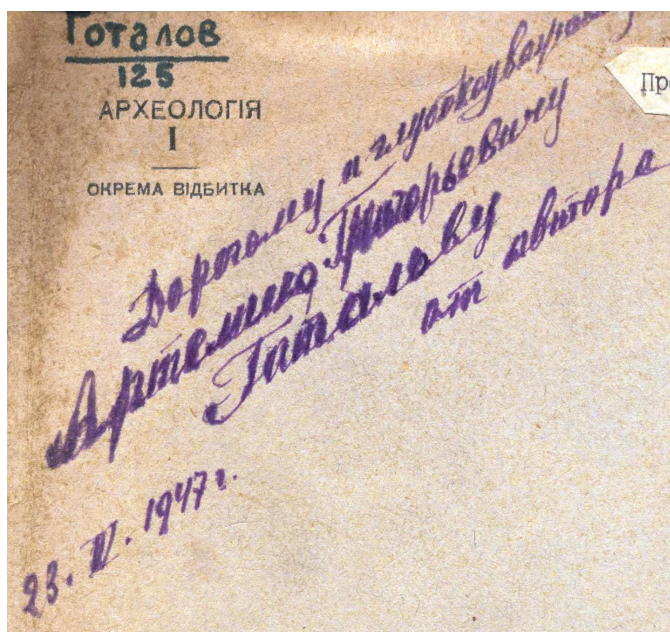 Готалов
125
АРХЕОЛОГІЯ
I
ОКРЕМА ВІДБИТКА
Пр
Дорогому и глубокоуважаемому
Артемию Григорьевичу
Готалову
от автора
23. IV. 1947 г.